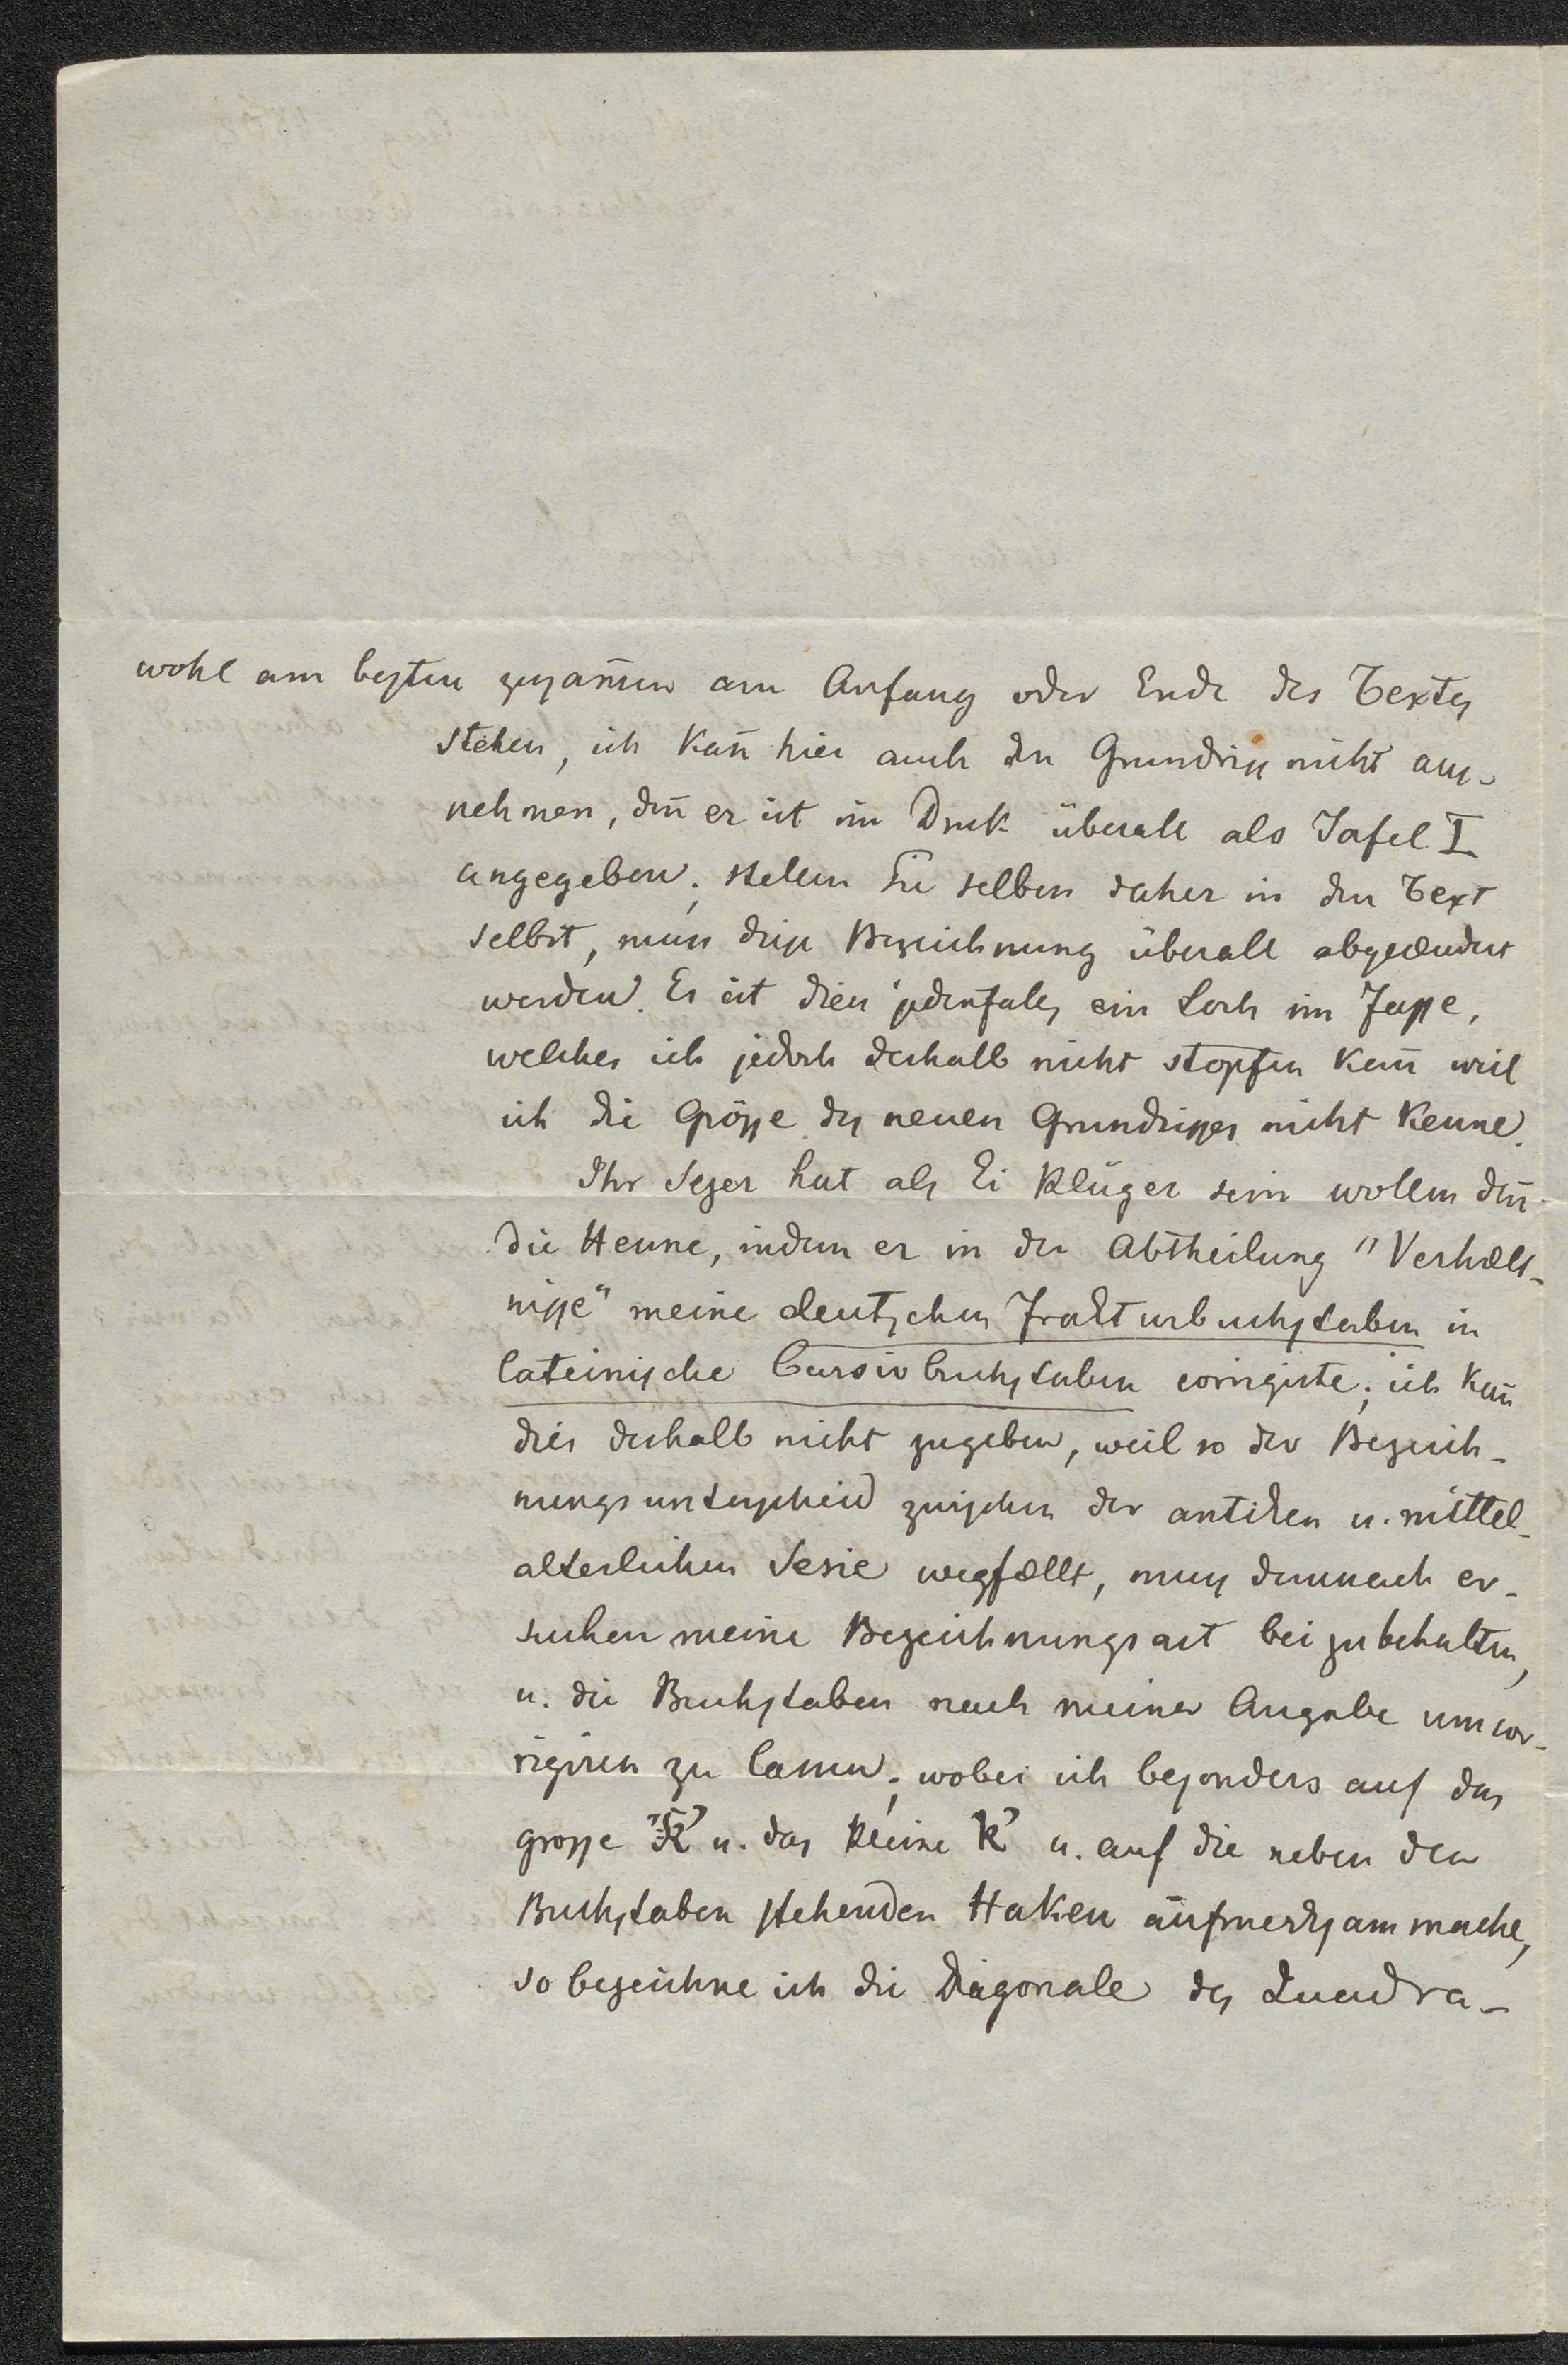 wohl am besten zusam̄en am Anfang oder Ende des Textes
stehen, ich kan̄ hier auch den Grundriss nicht aus-
nehmen, den̄ er ist im Druk überall als Tafel I
angegeben; stellen Sie selben daher in den Text
selbst, muss diese Bezeichnung überall abgeændert
werden. Es ist dies jedenfalls ein Loch im Fasse,
welches ich jedoch deshalb nicht stopfen kan̄ weil
ich die Grösse des neuen Grundrisses nicht kenne.
Ihr Sezer hat als Ei klüger sein wollen den̄
die Henne, indem er in der Abtheilung "Verhælt-
nisse" meine deutschen Frakturbuchstaben in
lateinische Cursivbuchstaben corrigirte; ich kan̄
dies deshalb nicht zugeben, weil so der Bezeich-
nungsunterschied zwischen der antiken u. mittel-
alterlichen Serie wegfællt, muss demnach er-
suchen meine Bezeichnungsart beizubehalten,
u. die Buchstaben nach meiner Angabe umcor-
rigiren zu lassen; wobei ich besonders auf das
grosse K' u. das kleine k' u. auf die neben den
Buchstaben stehenden Haken aufmerksam mache,
so bezeichne ich die Diagonale des Quadra-